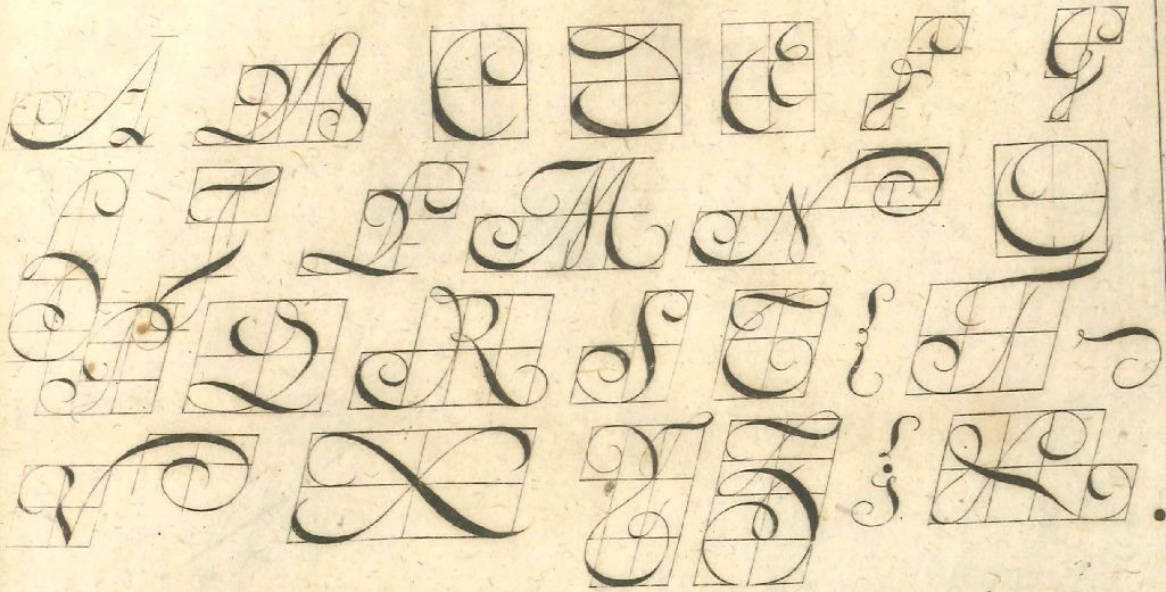 A B C D E F G
H I L M N O
P Q R S T
V X Y Z &